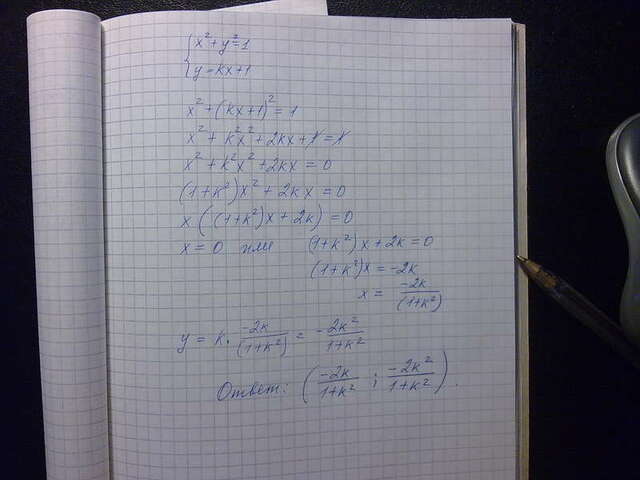 { x² + y² = 1
{ y = kx + 1
x² + (kx + 1)² = 1
x² + k²x² + 2kx + 1 = 1
x² + k²x² + 2kx = 0
(1 + k²)x² + 2kx = 0
x ((1 + k²)x + 2k) = 0
x = 0 или (1 + k²)x + 2k = 0
(1 + k²)x = -2k
x = -2k/(1 + k²)
y = k · -2k/(1 + k²) = -2k²/(1 + k²)
Ответ: (-2k/(1 + k²) ; -2k²/(1 + k²)).